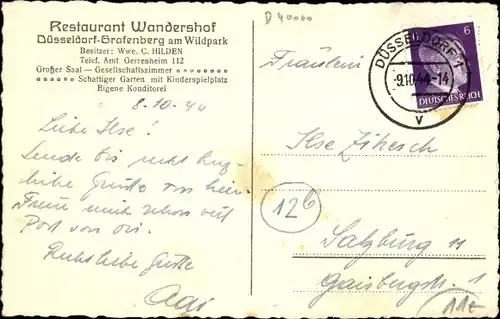 Restaurant Wandershof
Düsseldorf-Grafenberg am Wildpark
Besitzer: Wwe. C. HILDEN
Telef. Amt Gerresheim 112
Großer Saal — Gesellschaftszimmer
Schattiger Garten mit Kinderspielplatz
Eigene Konditorei
8.10.44
Liebe Ilse!
Sende Dir recht
liebe Grüße von hier
Freue mich schon auf
Post von Dir.
Recht liebe Grüße
D 40000
DÜSSELDORF 1
-9.10.44-14
V
6
DEUTSCHES REICH
Fräulein
Ilse
126
Salzburg 11